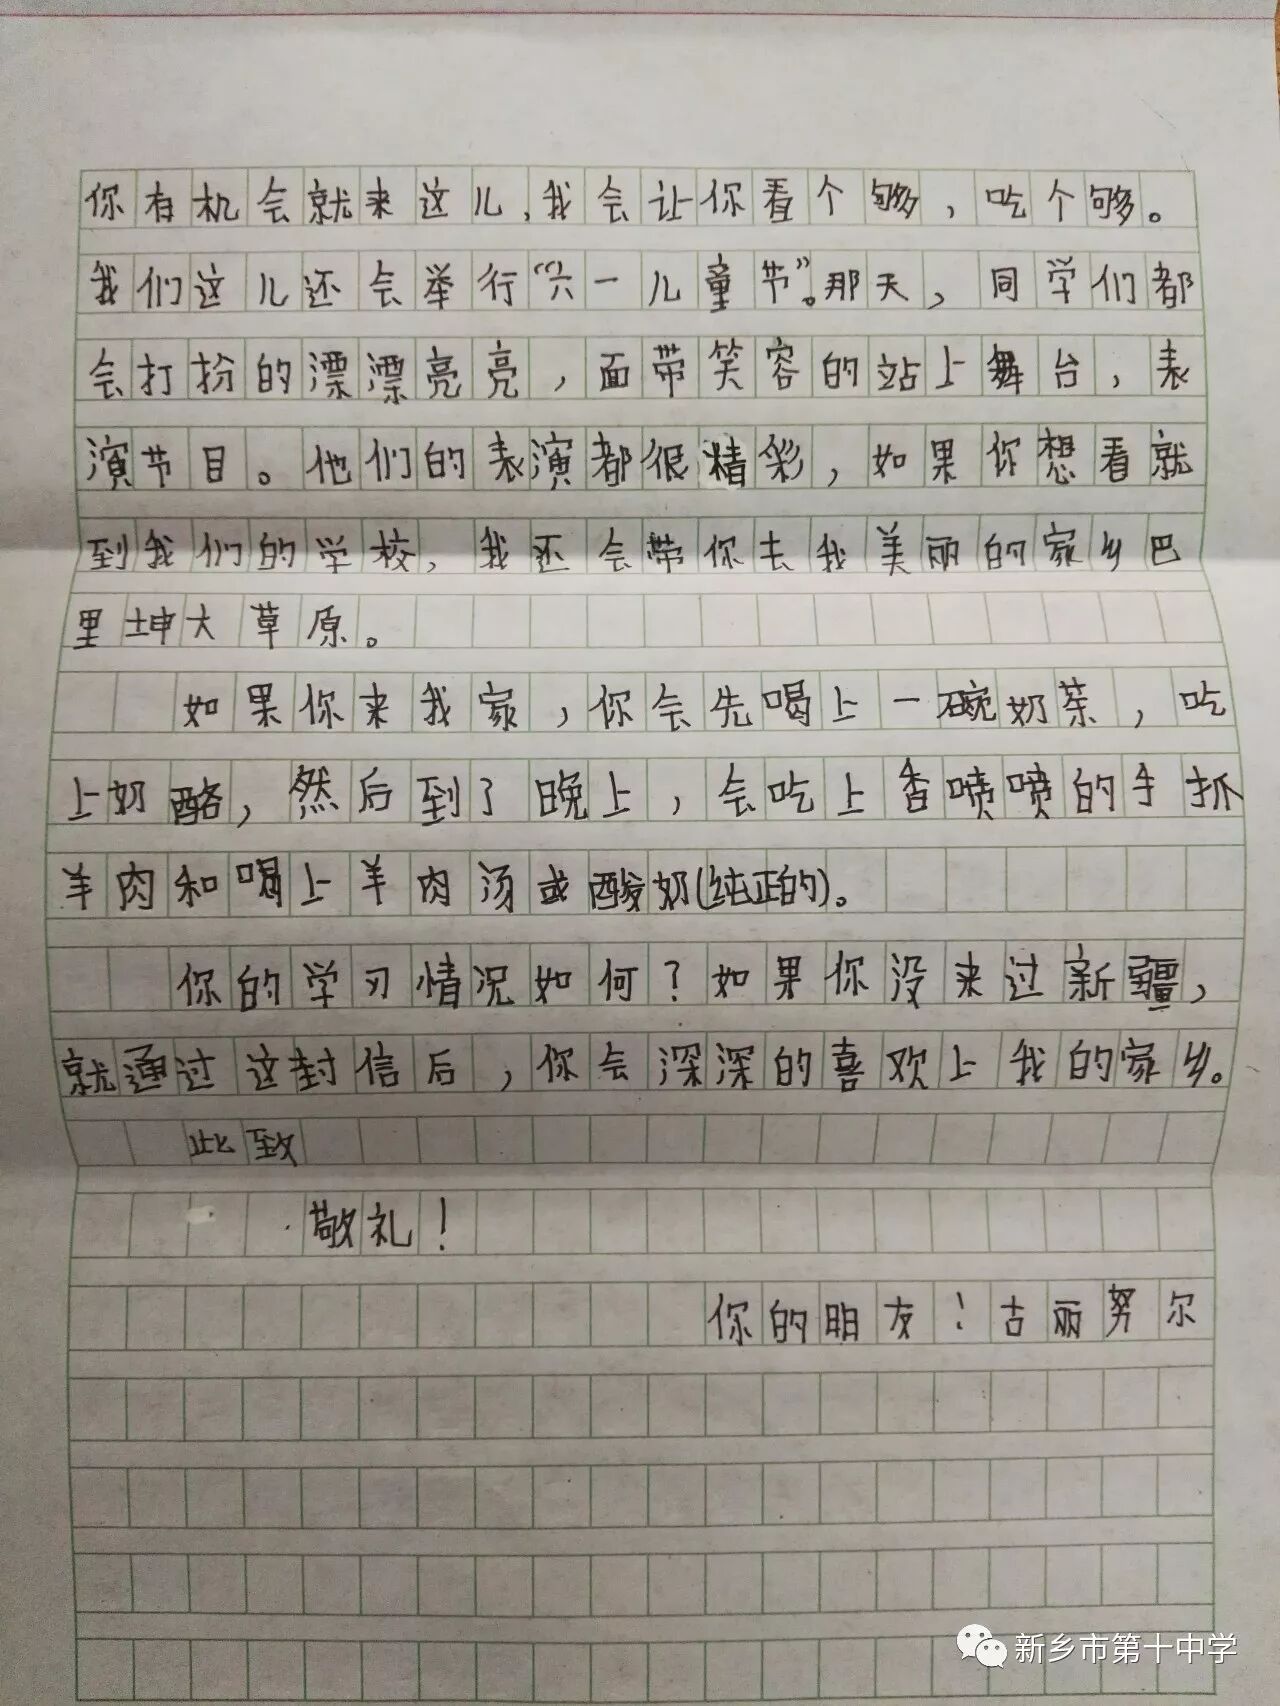 你有机会就来这儿,我会让你看个够，吃个够。
我们这儿还会举行“六一儿童节”。那天，同学们都
会打扮的漂漂亮亮，面带笑容的站上舞台，表
演节目。他们的表演都很精彩，如果你想看就
到我们的学校，我还会带你去我美丽的家乡巴
里坤大草原。
如果你来我家，你会先喝上一碗奶茶，吃
上奶酪，然后到了晚上，会吃上香喷喷的手抓
羊肉和喝上羊肉汤或酸奶(纯正的)。
你的学习情况如何？如果你没来过新疆，
就通过这封信后，你会深深的喜欢上我的家乡。
此致
敬礼！
你的朋友！古丽努尔
新乡市第十中学